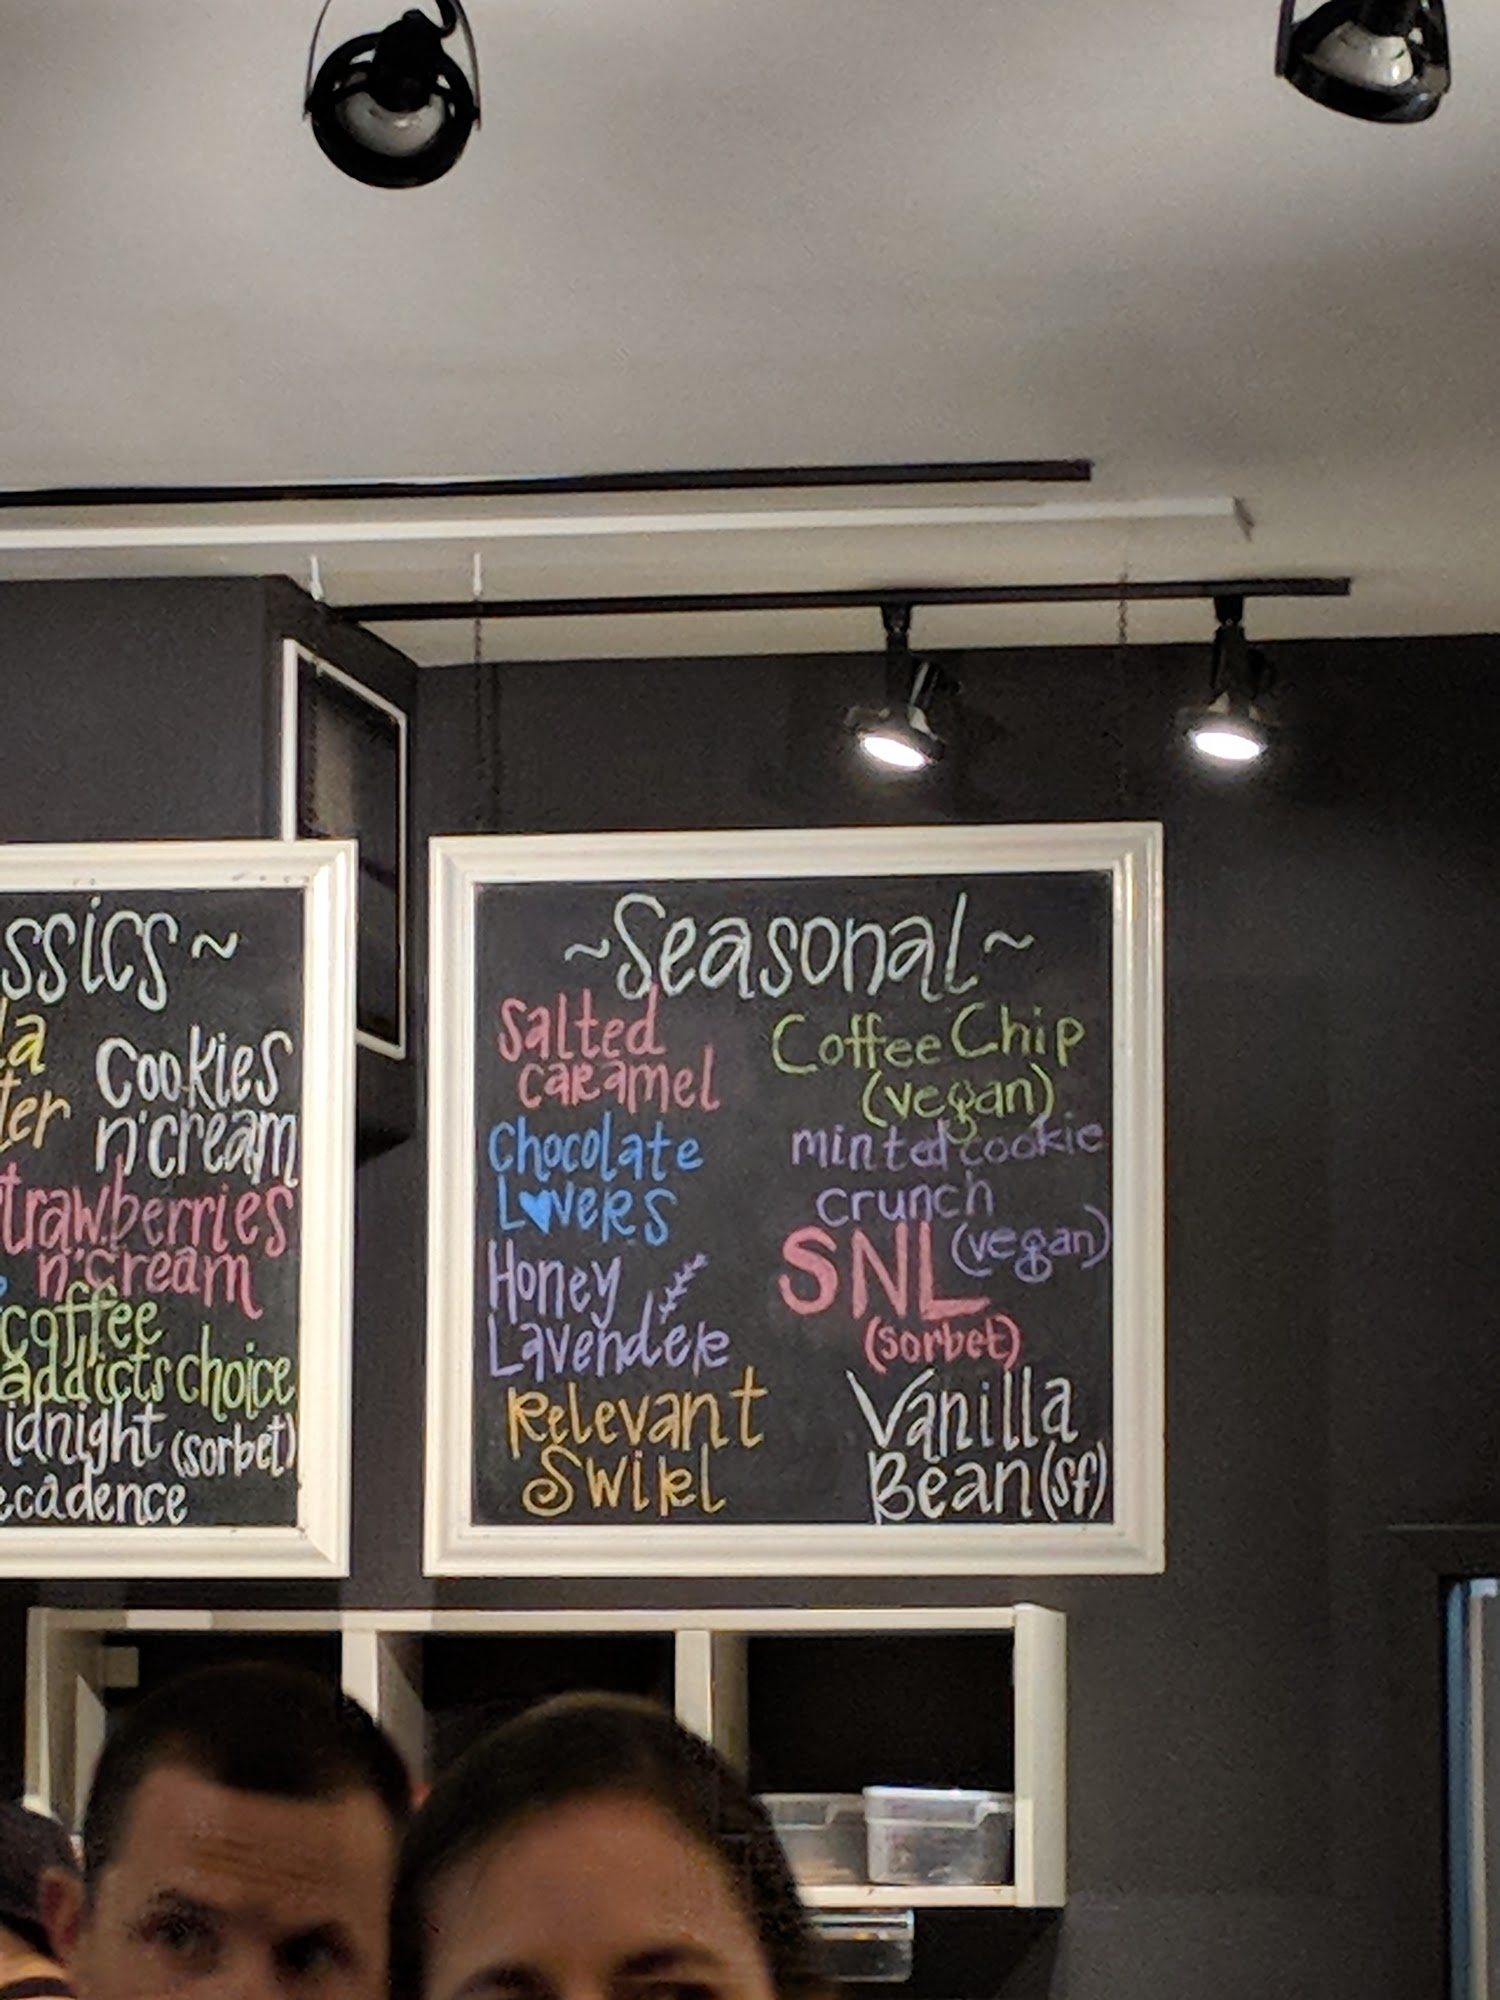 ssics ~
la
ter
Cookies
n'cream
trawberries
n'cream
coffee
addicts choice
idnight (sorbet)
ecadence
~Seasonal~
Salted
caramel
Chocolate
L♥vers
Honey
Lavender
Relevant
Swirl
Coffee Chip
(vegan)
minted cookie
crunch
(vegan)
SNL
(sorbet)
Vanilla
Bean (sf)